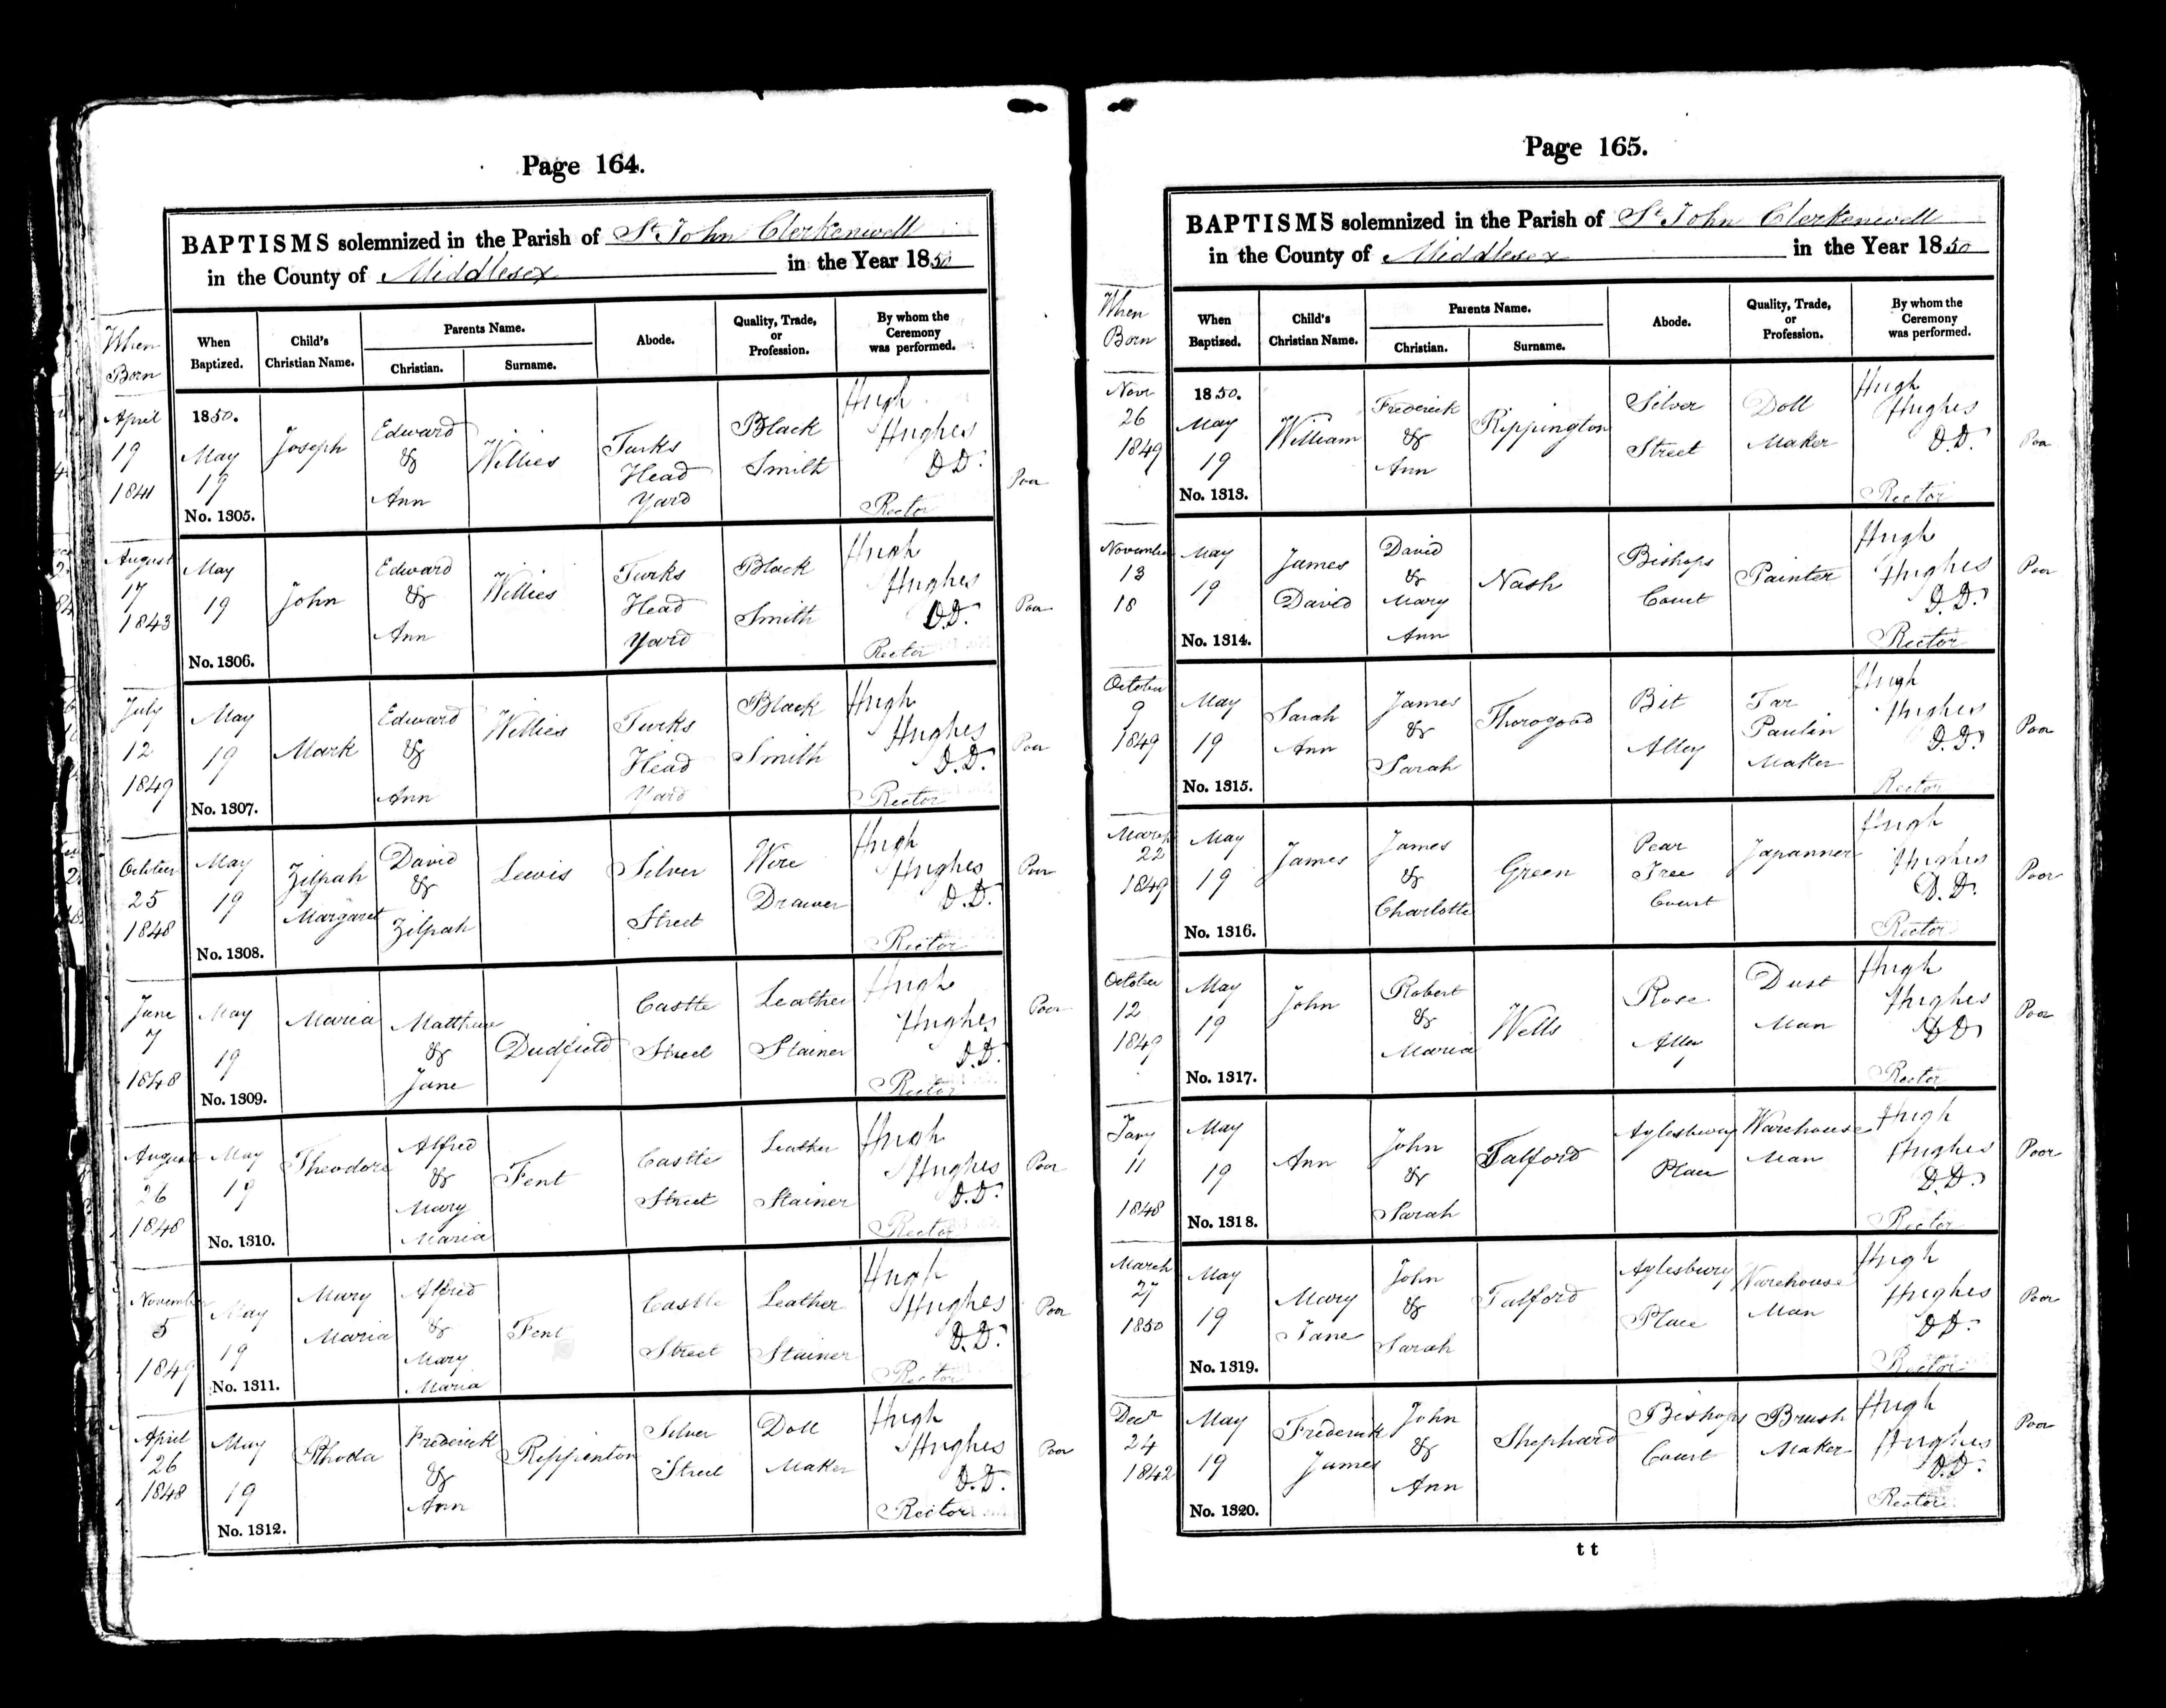 Page 164.
BAPTISMS solemnized in the Parish of St John Clerkenwell
in the County of Middlesex in the Year 1850
When Born
When Baptized.
Child's Christian Name.
Parents Name.
Christian.
Surname.
Abode.
Quality, Trade, or Profession.
By whom the Ceremony was performed.
April 19 1841
1850. May 19
No. 1305.
Joseph
Edward & Ann
Willies
Turks Head Yard
Black Smith
Hugh Hughes D.D. Rector
Poor
August 17 1843
May 19
No. 1306.
John
Edward & Ann
Willies
Turks Head Yard
Black Smith
Hugh Hughes D.D. Rector
Poor
July 12 1849
May 19
No. 1307.
Mark
Edward & Ann
Willies
Turks Head Yard
Black Smith
Hugh Hughes D.D. Rector
Poor
October 25 1848
May 19
No. 1308.
Zilpah Margaret
David & Zilpah
Lewis
Silver Street
Wire Drawer
Hugh Hughes D.D. Rector
Poor
June 7 1848
May 19
No. 1309.
Maria
Matthew & Jane
Dudfield
Castle Street
Leather Stainer
Hugh Hughes D.D. Rector
Poor
August 26 1848
May 19
No. 1310.
Theodore
Alfred & Mary Maria
Fent
Castle Street
Leather Stainer
Hugh Hughes D.D. Rector
Poor
November 5 1849
May 19
No. 1311.
Mary Maria
Alfred & Mary Maria
Fent
Castle Street
Leather Stainer
Hugh Hughes D.D. Rector
Poor
April 26 1848
May 19
No. 1312.
Rhoda
Frederick & Ann
Rippenton
Silver Street
Doll Maker
Hugh Hughes D.D. Rector
Poor
Page 165.
BAPTISMS solemnized in the Parish of St John Clerkenwell
in the County of Middlesex in the Year 1850
When Born
When Baptized.
Child's Christian Name.
Parents Name.
Christian.
Surname.
Abode.
Quality, Trade, or Profession.
By whom the Ceremony was performed.
Novr 26 1849
1850. May 19
No. 1313.
William
Frederick & Ann
Rippington
Silver Street
Doll Maker
Hugh Hughes D.D. Rector
Poor
November 13 18
May 19
No. 1314.
James David
David & Mary Ann
Nash
Bishops Court
Painter
Hugh Hughes D.D. Rector
Poor
October 9 1849
May 19
No. 1315.
Sarah Ann
James & Sarah
Thorogood
Bit Alley
Tar Paulin Maker
Hugh Hughes D.D. Rector
Poor
March 22 1849
May 19
No. 1316.
James
James & Charlotte
Green
Pear Tree Court
Japanner
Hugh Hughes D.D. Rector
Poor
October 12 1849
May 19
No. 1317.
John
Robert & Maria
Wells
Rose Alley
Dust Man
Hugh Hughes D.D. Rector
Poor
Jany 11 1848
May 19
No. 1318.
Ann
John & Sarah
Talford
Aylesbury Place
Warehouse Man
Hugh Hughes D.D. Rector
Poor
March 27 1850
May 19
No. 1319.
Mary Jane
John & Sarah
Talford
Aylesbury Place
Warehouse Man
Hugh Hughes D.D. Rector
Poor
Decr 24 1842
May 19
No. 1320.
Frederick James
John & Ann
Shephard
Bishops Court
Brush Maker
Hugh Hughes D.D. Rector
Poor
t t